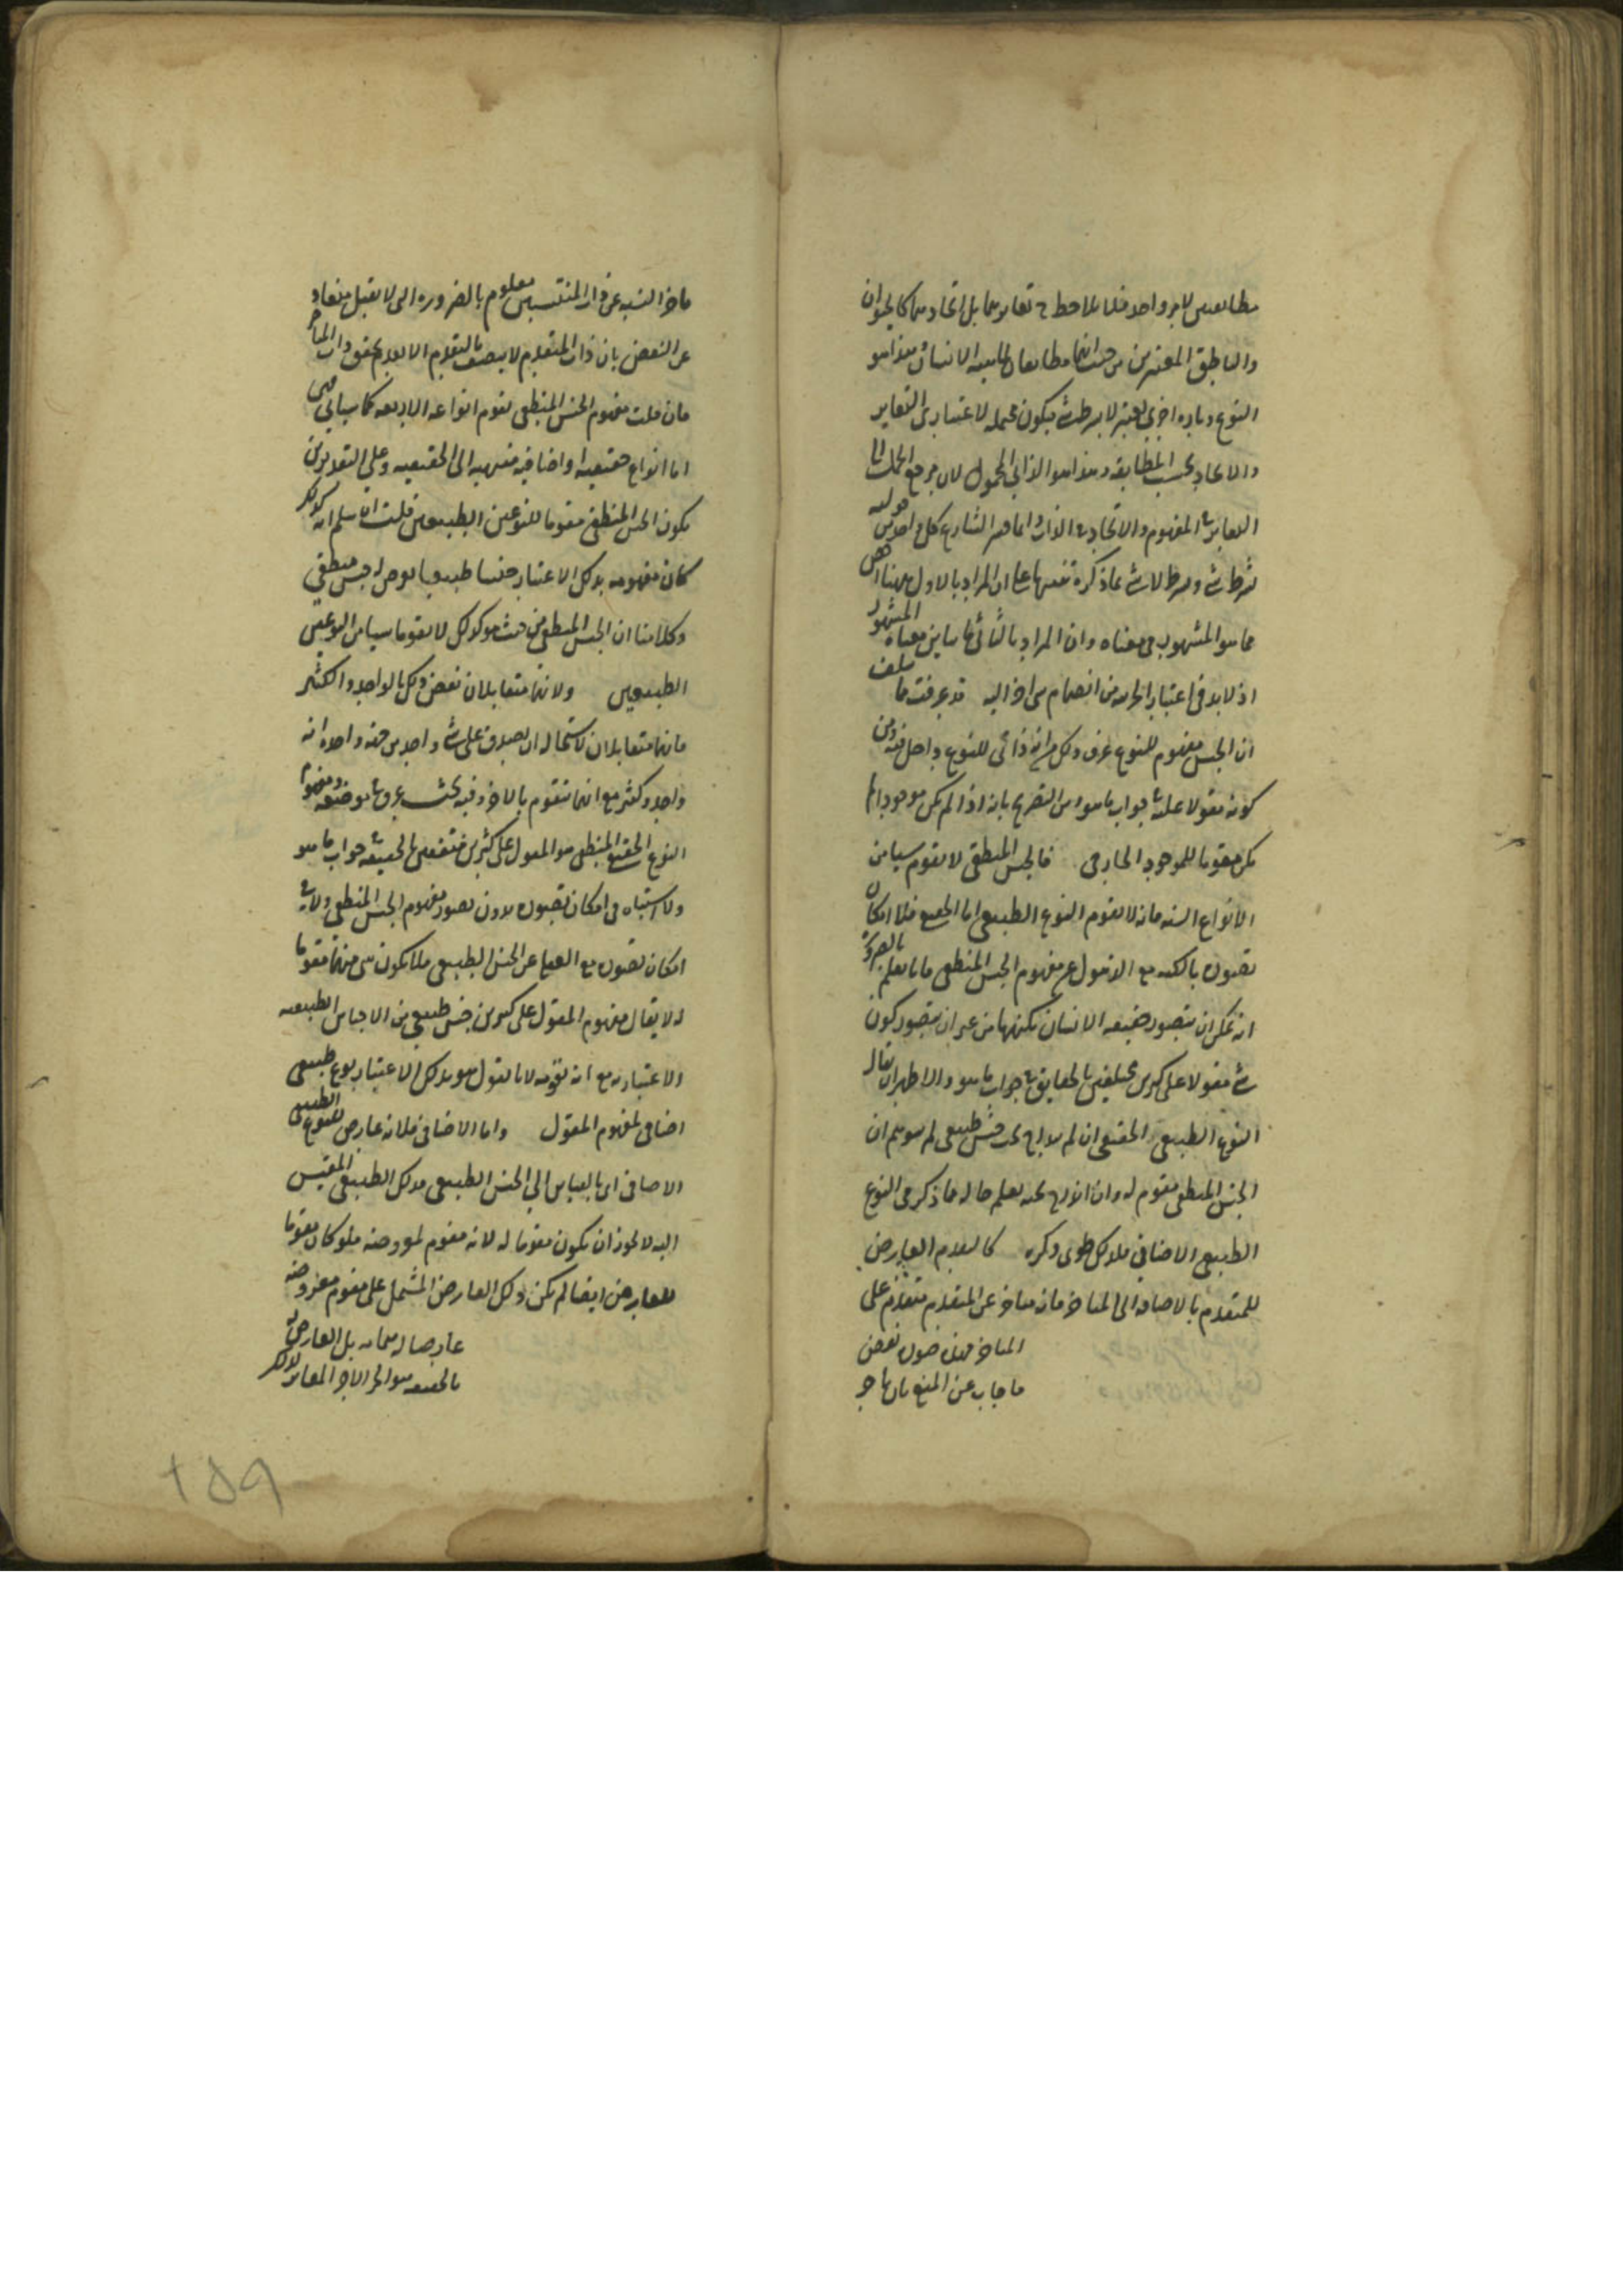 مطابقين لامر واحد فلا يلاحظ ح تغايرهما بل اتحادهما كالحيوان
والناطق المعتبرين من حيث انهما مطابقان لماهيه الانسان وهذا هو
النوع وتاره اخرى يعتبر لا بشرط شي فيكون محمله لاعتباري التغاير
والاتحاد بحسب المطابقه وهذا هو الذاتي المحمول لان مرجع الحمل الى
التغاير في المفهوم والاتحاد في الذات وانما فسر الشارح كل واحد من قوليه
بشرط شي وبشرط لا شي بما ذكره تنبيها على ان المراد بالاول ههنا اخص
مما هو المشهور في معناه وان المراد بالثاني ما يباين معناه المشهور
اذ لا بد في اعتبار الجزئيه من انضمام شي اخر اليه قد عرفت ما سلف
ان الجنس مفهوم للنوع عرف ذلك من انه ذاتي للنوع داخل فيه ومن
كونه مقولا عليه في جواب ما هو من التصريح بانه اذا لم يكن موجودا لم
يكن مقوما للموجود الخارجي فالجنس المنطقي لا يقوم شيا من
الانواع السته فانه لا يقوم النوع الطبيعي اما الحقيقي فلامكان
تصوره بالكنه مع الذهول عن مفهوم الجنس المنطقي فانا نعلم بالضروره
انه يمكن ان يتصور حقيقه الانسان بكنهها من غير ان يتصور كون
شي مقولا على كثيرين مختلفين بالحقايق في جواب ما هو والاظهر ان يقال
النوع الطبيعي الحقيقي ان لم يندرج تحت جنس طبيعي لم يتوهم ان
الجنس المنطقي مقوم له وان اندرج تحته يعلم حاله مما ذكر في النوع
الطبيعي الاضافي فلذلك طوى ذكره كالتقدم العارض
للمتقدم بالاضافه الى المتاخر فانه متاخر عن المتقدم متقدم على
المتاخر صوره نقض
فاجاب عن المنع بان تاخر
تاخر النسبه عن ذات المنتسبين معلوم بالضروره التي لا تقبل منعا و
عن النقض بان ذات المتقدم لا يتصف بالتقدم الا بعد تحقق ذات المتاخر
فان قلت مفهوم الجنس المنطقي يقوم انواعه الاربعه كما سياتي فهي
اما انواع حقيقيه او اضافيه منتهيه الى الحقيقيه وعلى التقديرين
يكون الجنس المنطقي مقوما للنوعين الطبيعيين قلت ان سلم انه كذلك
كان مفهومه بذلك الاعتبار جنسا طبيعيا يعرض له جنس منطقي
وكلامنا ان الجنس المنطقي من حيث هو كذلك لا يقوم شيا من النوعين
الطبيعيين ولانهما متقابلان نقض ذلك بالواحد والكثير
فانهما متقابلان لاستحاله ان يصدق على شي واحد من جهه واحده انه
واحد وكثير مع انهما يتقوم بالاخر وفيه بحث عرف في موضعه ومفهوم
النوع الحقيقي المنطقي هو المقول على كثيرين متفقين بالحقيقه في جواب ما هو
ولا اشتباه في امكان تصوره بدون تصور مفهوم الجنس المنطقي ولا في
امكان تصوره مع العمى عن الجنس الطبيعي فلا يكون شي منهما مقوما
له لا يقال مفهوم المقول على كثيرين جنس طبيعي من الاجناس الطبيعيه
الاعتباريه مع انه يقومه لانا نقول هو بذلك الاعتبار نوع طبيعي
اضافي لمفهوم المقول واما الاضافي فلانه عارض للنوع الطبيعي
الاضافي اي بالقياس الى الجنس الطبيعي فذلك الطبيعي المقيس
اليه لا يجوز ان يكون مقوما له لانه مقوم لمعروضه فلو كان مقوما
للعارض ايضا لم يكن ذلك العارض المشتمل على مقوم معروضه
عارضا له بتمامه بل العارض له
بالحقيقه هو الجزء الاخر المغاير لذلك
١٥٩